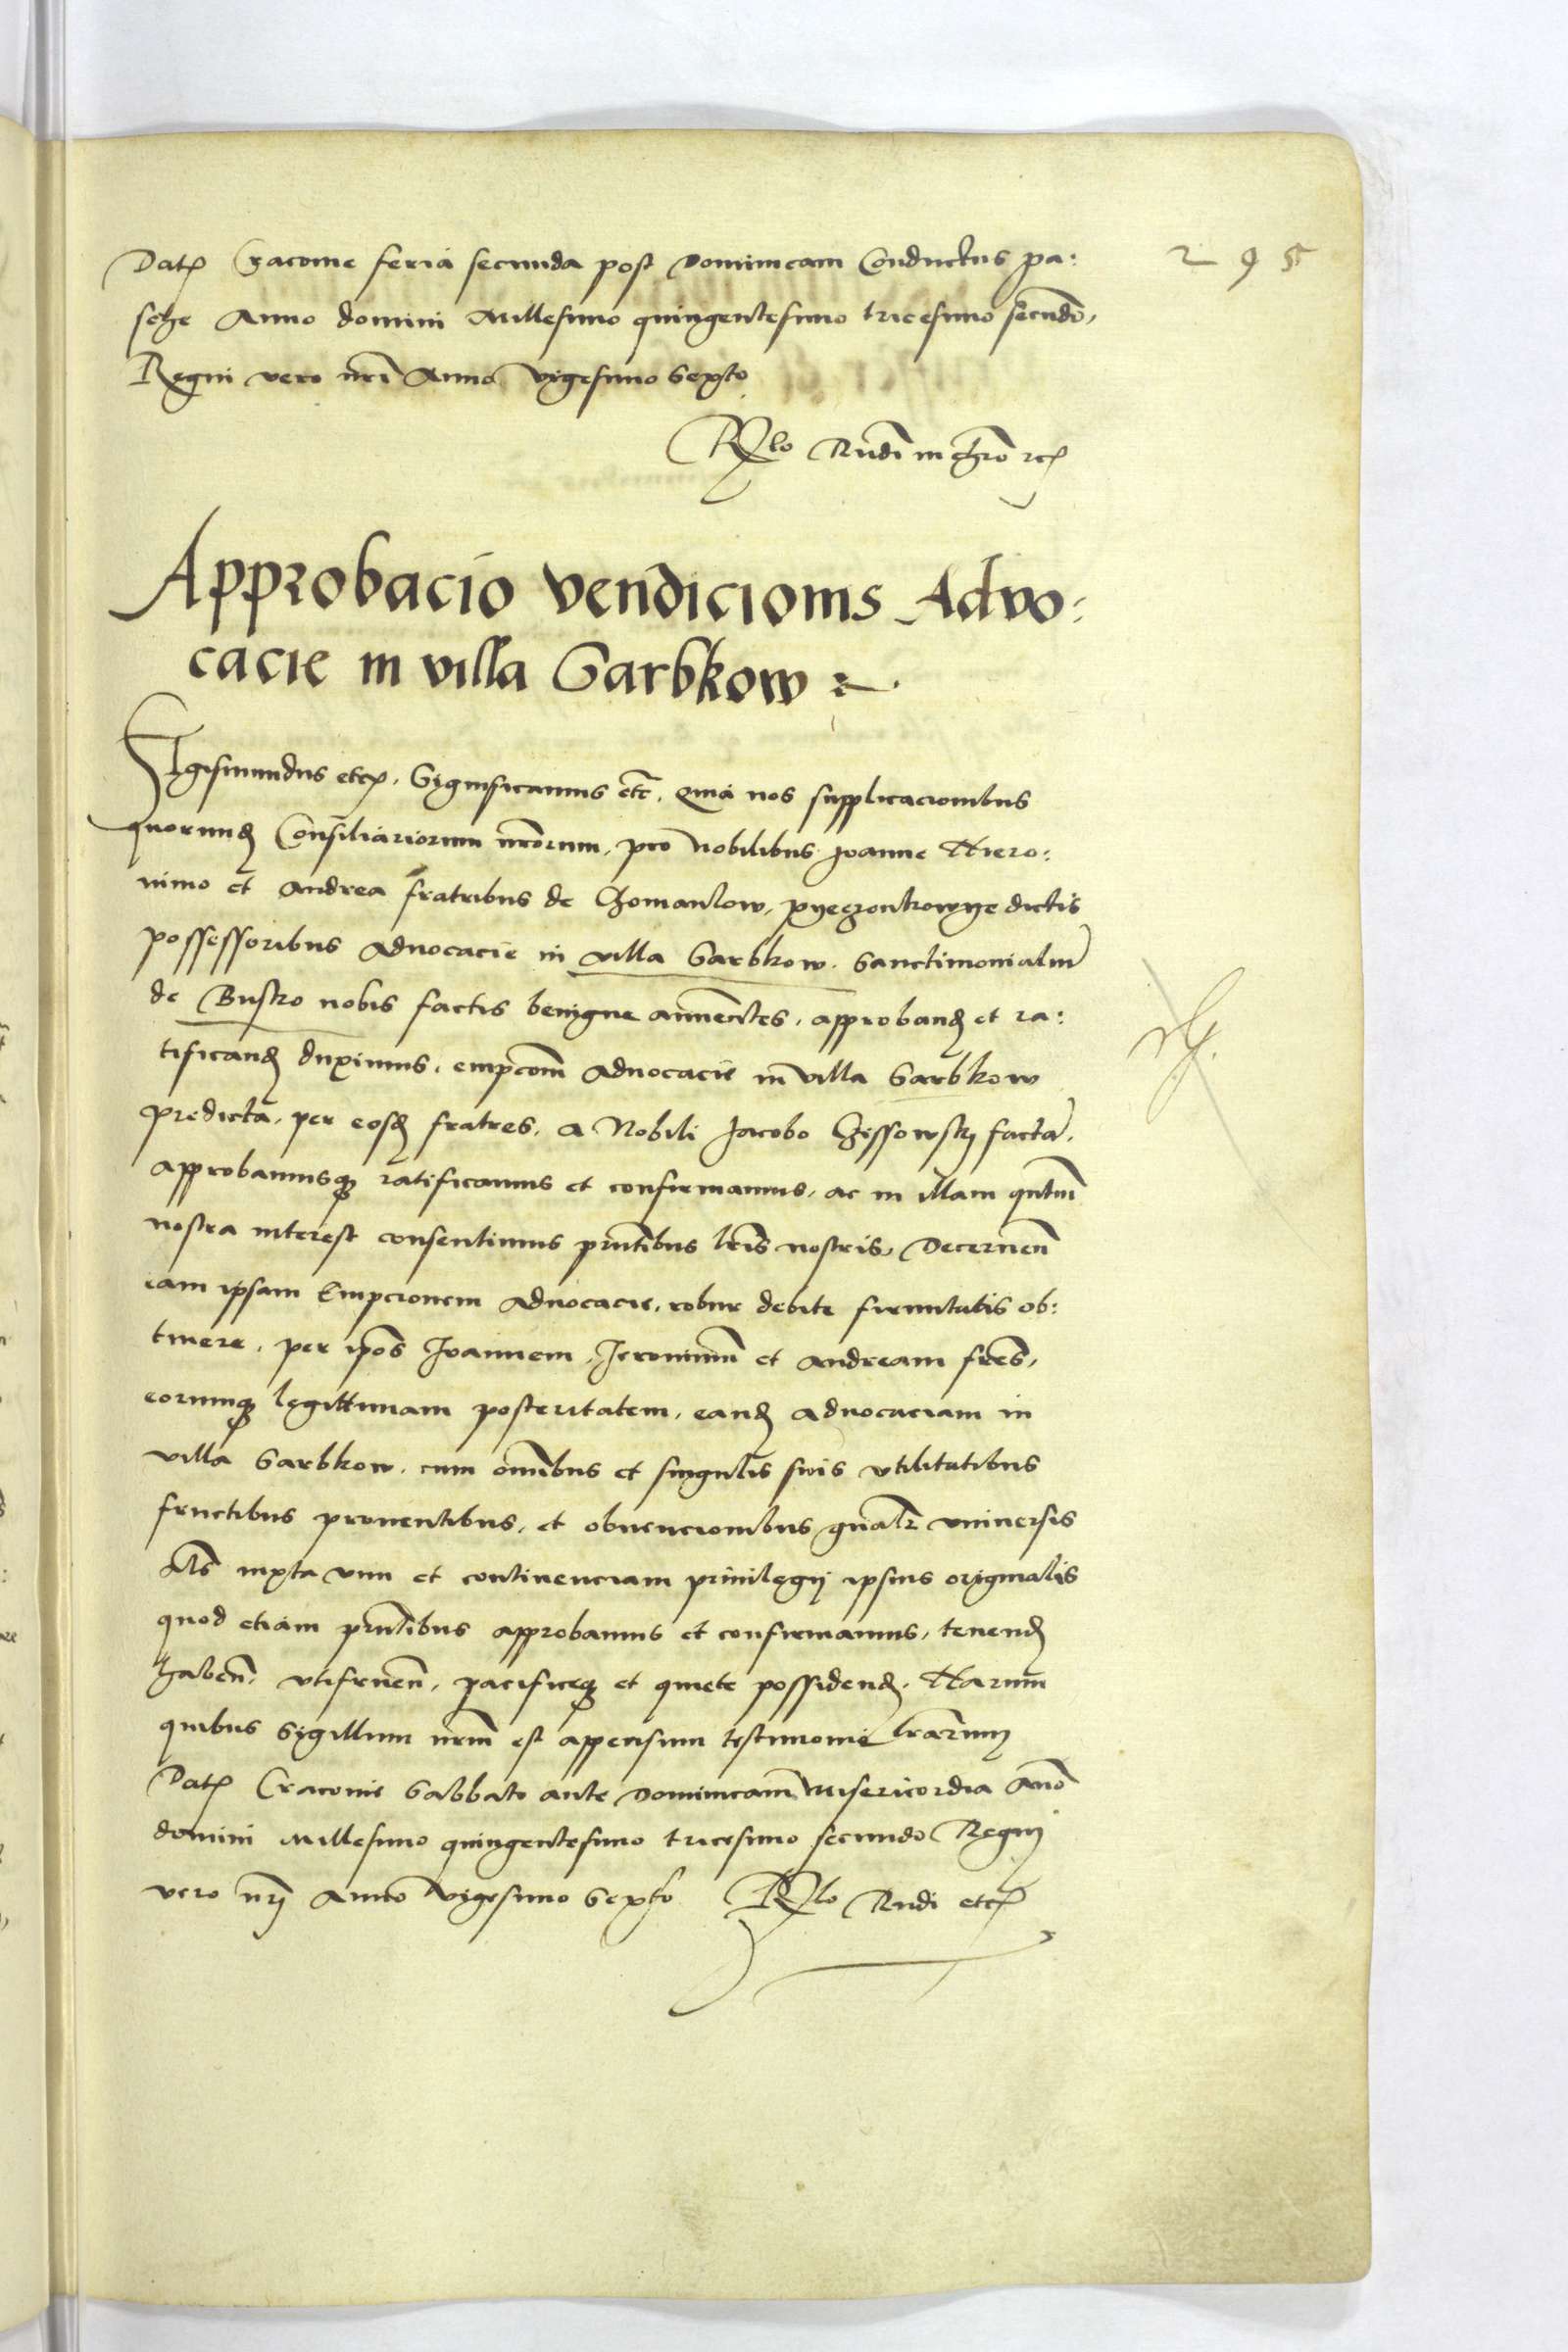 295
Datꝭ Cracouie feria secunda post Dominicam Conductus pa:
sche Anno domini Millesimo quingentesimo tricesimo secundo,
Regni vero nri Anno vigesimo Sexto
Rlo Rndi in Chro etcꝭ
Approbacio vendicionis Advo:
cacie in villa Garbkow
Sigismundus etcꝭ. Significamus etc. Quia nos supplicacionibus
quorundꝭ Consiliariorum nrorum, pro Nobilibus Joanne Hiero:
nimo et Andrea fratribus de dictis
possessoribus Aduocacie in villa Garbkow. Sanctimonialiu
de Busko nobis factis benigne annuentes, approbandꝭ et ra:
tificandꝭ duximus, empcom Aduocacie in villa Garbkow
predicta, per eosdꝭ fratres, a Nobili Jacobo facta,
approbamusqꝫ ratificamus et confirmamus, ac in illam qntum
nostra interest consentimus pntibus lris nostris, Decernen
eam ipsam Empcionem Aduocacie, robur debite firmitatis ob:
tinere, per ipos Joannem, Jeronimu et Andream fres,
eorumqꝫ legittimam posteritatem, eandꝭ Aduocaciam in
villa Garbkow, cum omibus et singulis suis vtilitatibus
fructibus prouentibus, et obuencionibus gnalr vniuersis
als iuxta vim et continenciam priuilegij ipsius originalis
quod etiam pntibus approbamus et confirmamus, tenendꝭ
haben, vtifruen, pacificeqꝫ et quiete possidendꝭ. Harum
quibus Sigillum nrm est appensum testimonio lrarum
Datꝭ Cracouie Sabbato ante Dominicam Misericordia Ano
domini Millesimo quingentesimo tricesimo secundo Regni
vero nrj Anno vigesimo Sexto Rlo Rndi etcꝭ